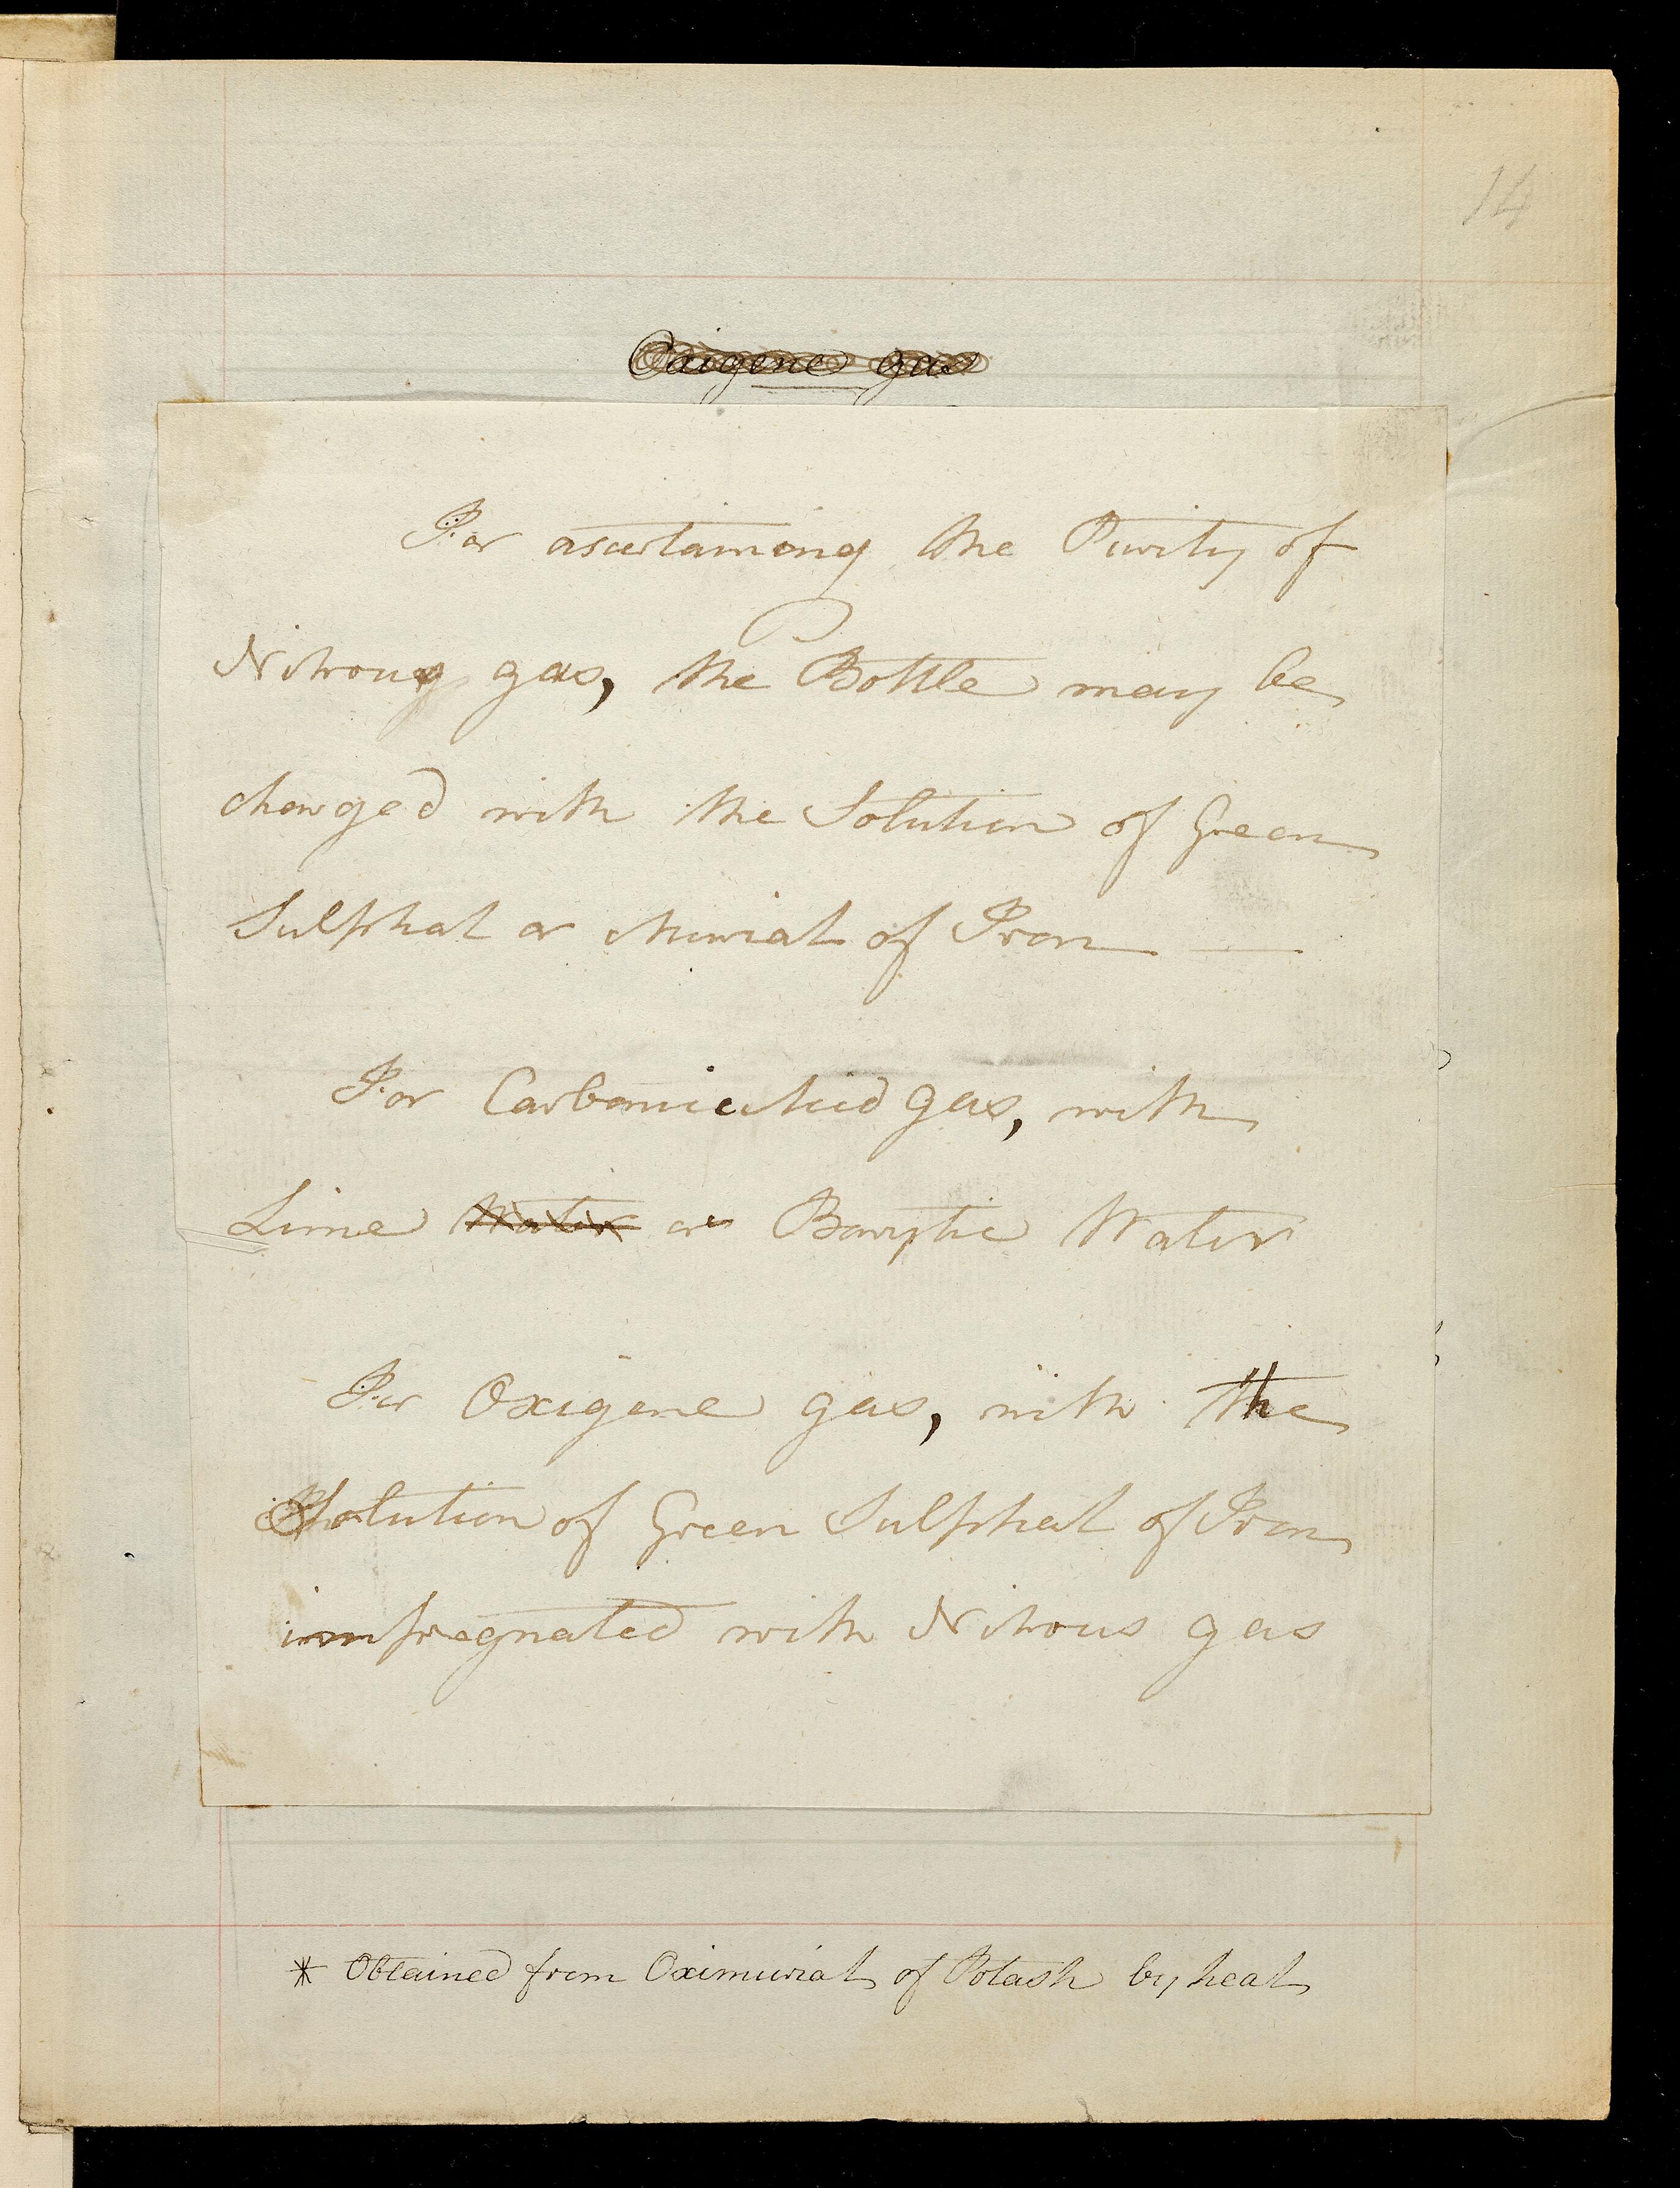 14
Oxigene gas
For ascertaining the Purity of
Nitrous gas, the Bottle may be
charged with the Solution of Green
Sulphat or Muriat of Iron —
For Carbonic Acid gas, with
Lime Water or Barytic Water
For Oxigene gas, with the
Solution of Green Sulphat of Iron
impregnated with Nitrous gas
* Obtained from Oximuriat of Potash by heat